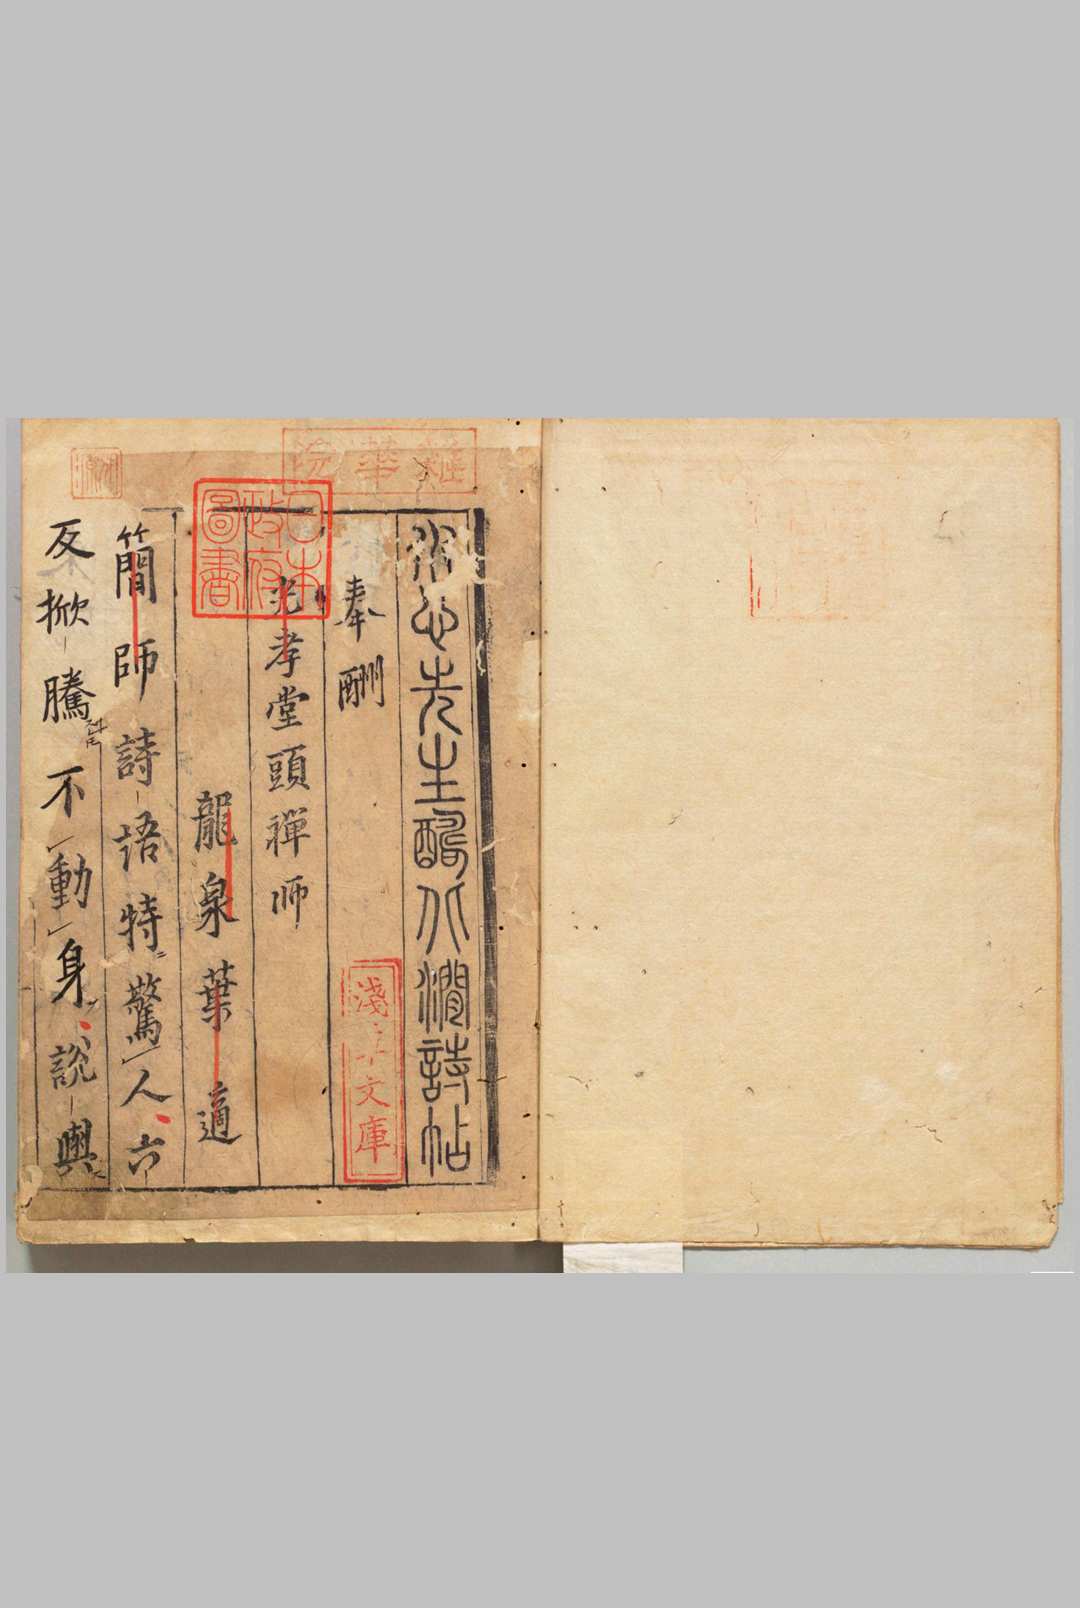 水心先生酬北磵詩帖
奉酬
光孝堂頭禪師
龍泉葉適
簡師詩語特驚人六
反掀騰不動身說與
日本
政府
圖書
淺草文庫